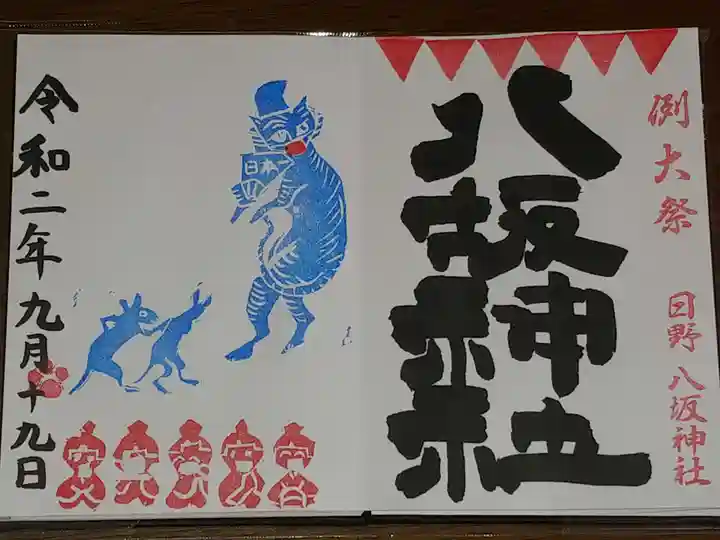 例大祭
日野 八坂神社
八坂神社
日本
令和二年九月十九日